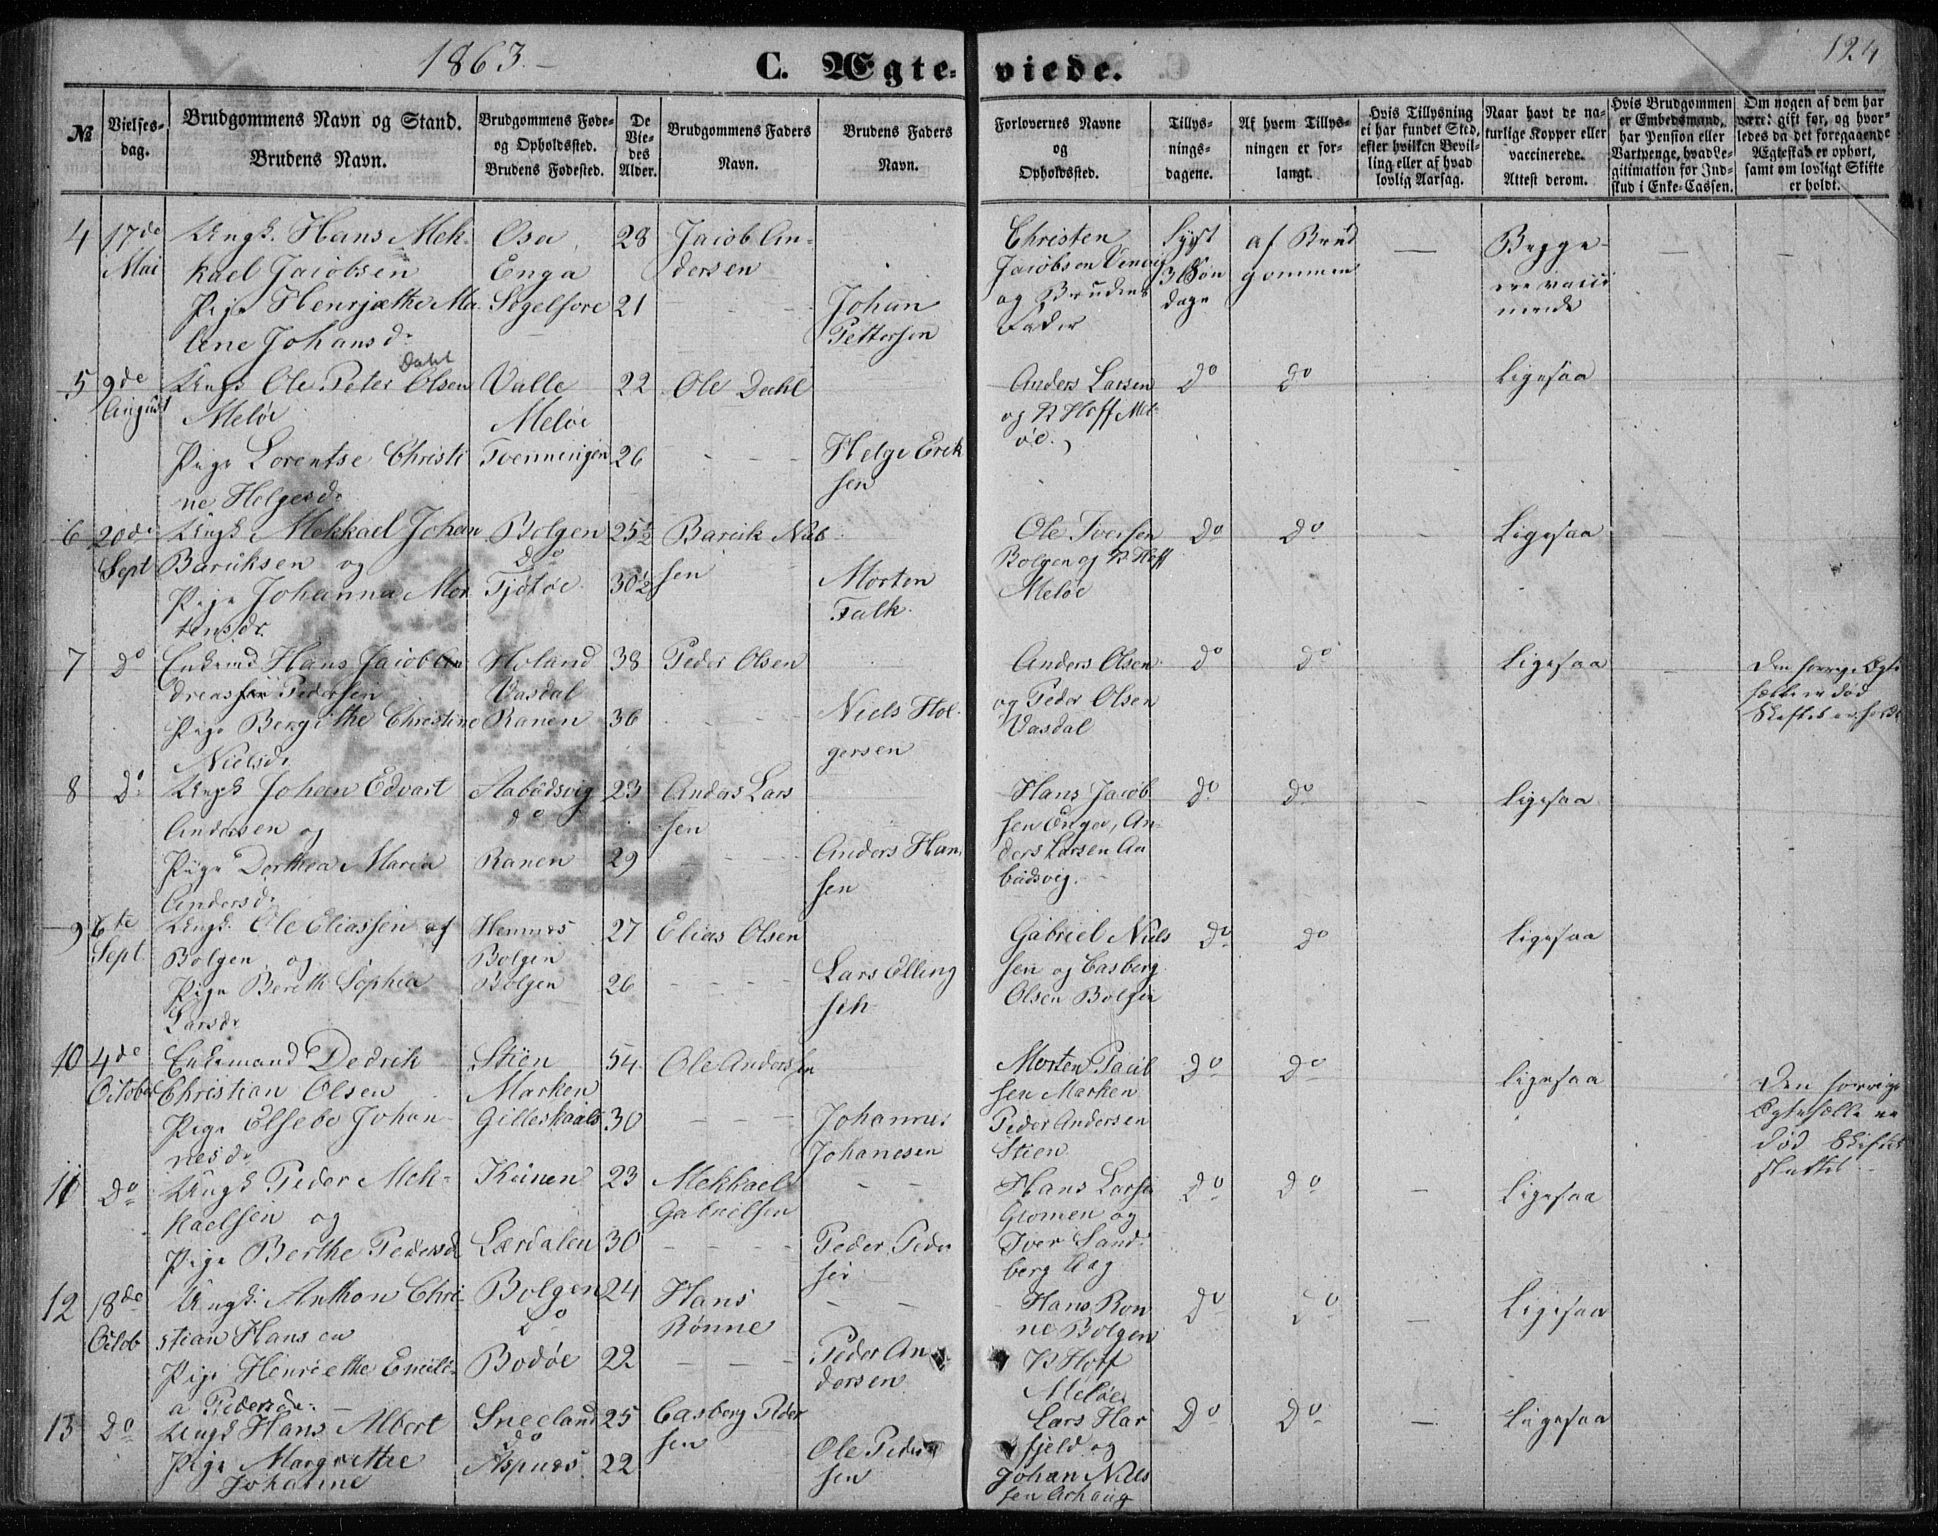 1863.
C. Ægte-
viede.
124
№
Vielses-
dag.
Brudgommens Navn og Stand.
Brudens Navn.
Brudgommens Føde-
og Opholdssted.
Brudens Fødested.
De
Vie-
des
Alder.
Brudgommens Faders
Navn.
Brudens Faders
Navn.
Forlovernes Navne
og
Opholdssted.
Tillys-
nings-
dagene.
Af hvem Tillys-
ningen er for-
langt.
Hvis Tillysning
ei har fundet Sted,
efter hvilken Bevil-
ling eller af hvad
lovlig Aarsag.
Naar havt de na-
turlige Kopper eller
vaccinerede.
Attest derom.
Hvis Brudgommen
er Embedsmand,
har Pension eller
Vartpenge, hvad Le-
gitimation for Ind-
skud i Enke-Cassen.
Om nogen af dem har
været gift før, og hvor-
ledes da det foregaaende
Ægteskab er ophørt,
samt om lovligt Skifte
er holdt.
4
17de
Mai
Ungk. Hans Mek-
kael Jacobsen
Pige Henrjæthe Ma-
lene Johansd.
Osa
Enga
Segelfore
28
21
Jacob An-
dersen
Johan
Pettersen
Christen
Jacobsen
og Brudens
Fader
Lyst
3 Søn
dage
af Brud
gommen
—
Begge
ere vacci
nerede
—
—
5
9de
August
Ungk Ole Peter Olsen
Dahl
Meløe
Pige Lorentse Christi
ne Helgesd.
Valle
Meløe
Tvenningen
22
26
Ole Dahl
Helge Erik
sen
Anders Larsen
og P Hoff Mel-
øe.
Do
Do
Ligesaa
6
20de
Sept
Ungk Mekkael Johan
Bariksen og
Pige Johanna Mor
tensdr.
Bolgen
Do
Tjøtøe
25½
30½
Barik Nils
sen
Morten
Falk.
Ole Iversen
Bolgen og P Hoff
Meløe
Do
Do
Ligesaa
7
Do
Enkemd Hans Jacob An
dreassen Pedersen
Pige Bergithe Christine
Nielsdr
Holand
Vasdal
Ranen
38
36
Peder Olsen
Niels Hol-
gersen
Anders Olsen
og Peder Olsen
Vasdal
Do
Do
Ligesaa
Den forrige Ægte
fælle er død
Skifte er holdt
8
Do
Ungk Johan Edvart
Andersen og
Pige Dorthea Maria
Andersd.
Aabodsvig
do
Ranen
23
29
Anders Lars
sen
Anders Han
sen
Hans Jacob
sen Engen, An-
ders Larsen Aa
bodsvig.
Do
Do
Ligesaa
9
6te
Sept.
Ungk. Ole Eliassen af
Bolgen og
Pige Bereth Sophia
Larsdr
Hemnes
Bolgen
Bolgen
27
26
Elias Olsen
Lars Elling
sen
Gabriel Niels
sen og Casberg
Olsen Bolgen
Do
Do
Ligesaa
10
4de
October
Enkemand Dedrik
Christian Olsen
Pige Elsebe Johan
nesdr
Stien
Marken
Gilleskaals
54
30
Ole Anderssen
Johannes
Johanesen
Morten Paul
sen Marken
Peder Andersen
Stien
Do
Do
Ligesaa
Den forrige
Ægtefælle er
død Skiftet
sluttet
11
Do
Ungk Peder Mek-
kaelsen og
Pige Berthe Pedersd
Kunen
Lærdalen
23
30
Mekkael
Gabrielsen
Peder Peder
sen
Hans Larsen
Glomen og
Iver Sand-
berg Aag
Do
Do
Ligesaa
12
18de
Octob
Ungk. Anthon Chri-
stian Hansen
Pige Henriethe Emeli-
a Pedersdr.
Bolgen
Do
Bodøe
24
22
Hans
Rønne
Peder An
dersen
Hans Ron
ne Bolgen
P Hoff
Meløe
Do
Do
Ligesaa
13
Do
Ungk Hans Albert
Pige Margrethe
Johanne
Sneeland
Do
Aspnes
25
22
Casberg Peder
sen
Ole Peder
sen
Lars Har
fjeld og
Johan Niels
sen Arhaug
Do
Do
Ligesaa